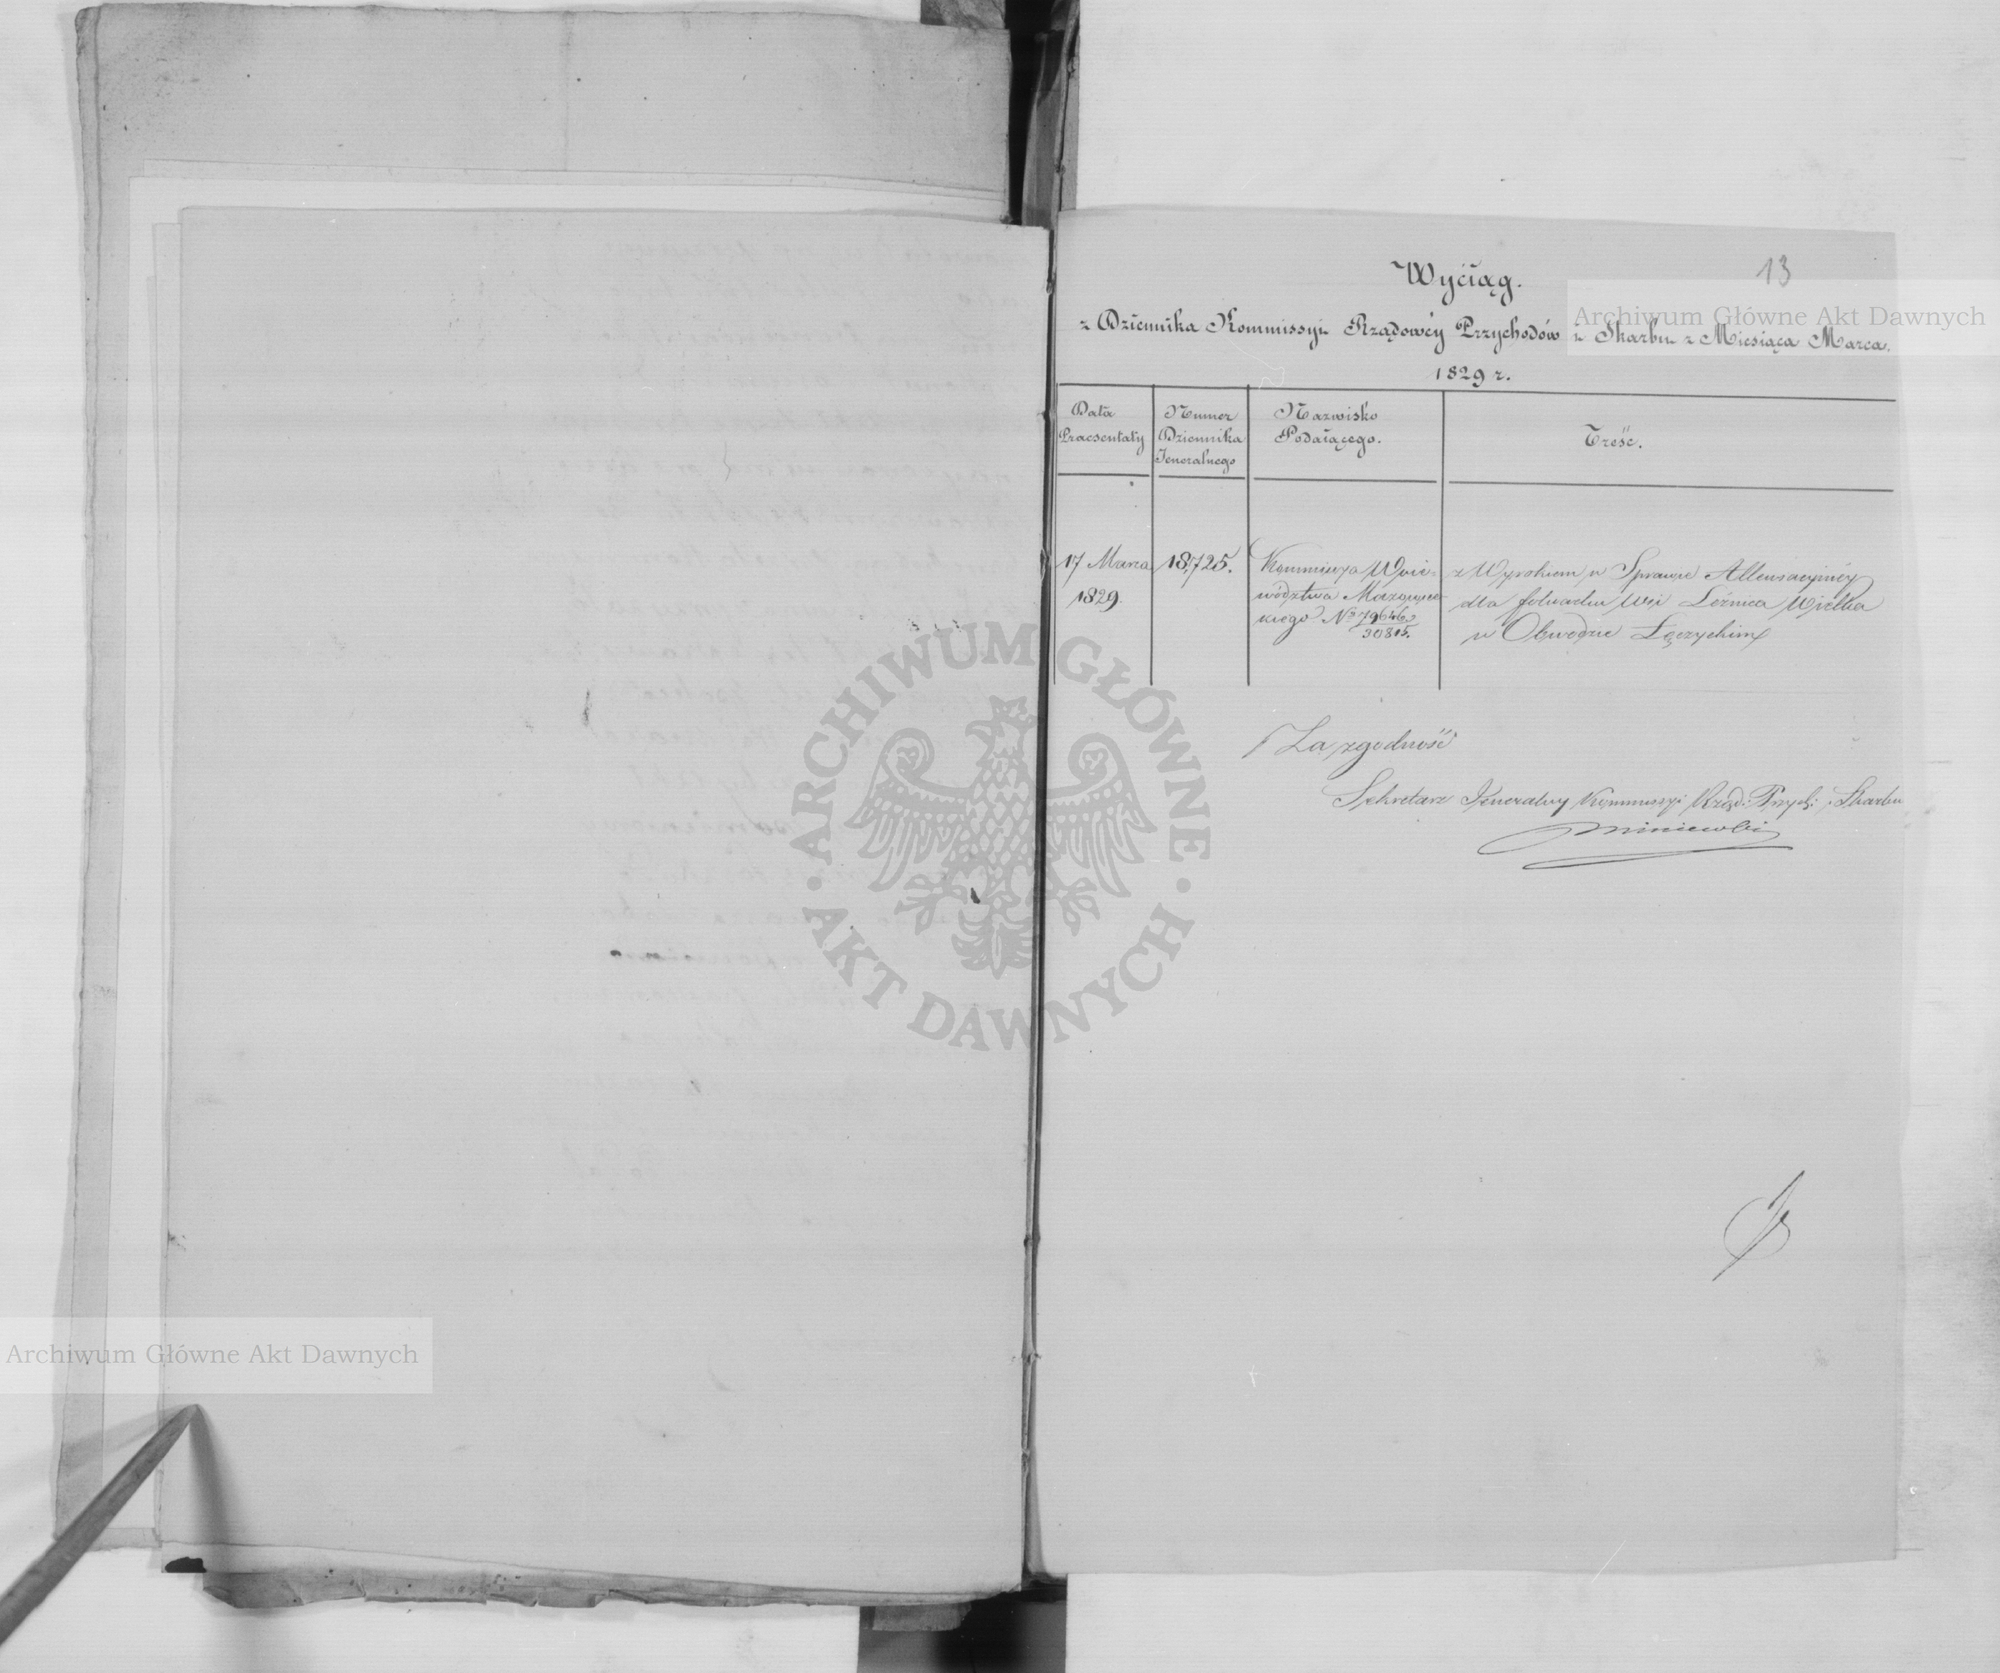 13
Wyciąg.
z Dziennika Kommissyi Rządowéy Przychodów i Skarbu z Miesiąca Marca.
1829 r.
Data Praesentaty
Numer Dziennika Jeneralnego
Nazwisko Podaiącego.
Treść.
17 Marca 1829.
18,725.
Kommissya Woie-
wództwa Mazowiec-
kiego No 79646
30815.
z Wyrokiem w Sprawie
dla folwarku Wsi Leźnica Wielka
w Obwodzie Łęczyckim
Za zgodność
Sekretarz Jeneralny Kommissyi Rząd: Przych: i Skarbu
Archiwum Główne Akt Dawnych
ARCHIWUM GŁÓWNE
AKT DAWNYCH
Archiwum Główne Akt Dawnych